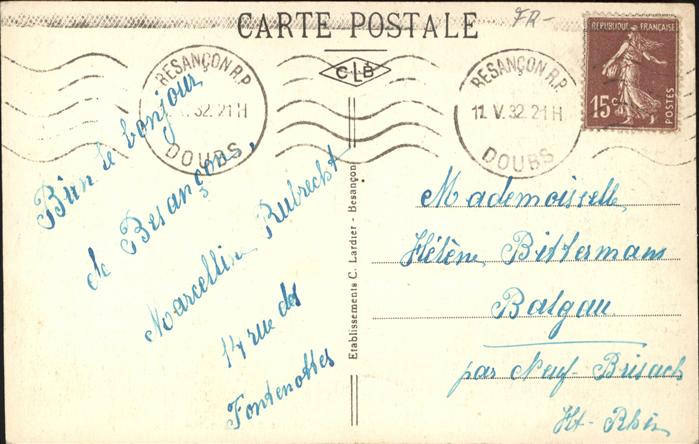 FR-
CARTE POSTALE
CLB
BESANÇON R.P.
V. 32. 21 H
DOUBS
BESANÇON R.P.
11. V. 32. 21 H
DOUBS
REPUBLIQUE FRANÇAISE
15 c
POSTES
Bien le bonjour
de Besançon,
Marcelline Ruibrecht
14 rue des
Fontenottes
Etablissements C. Lardier - Besançon
Mademoiselle,
Hélène Bittermann
Balgau
par Neuf-Brisach
Ht-Rhin